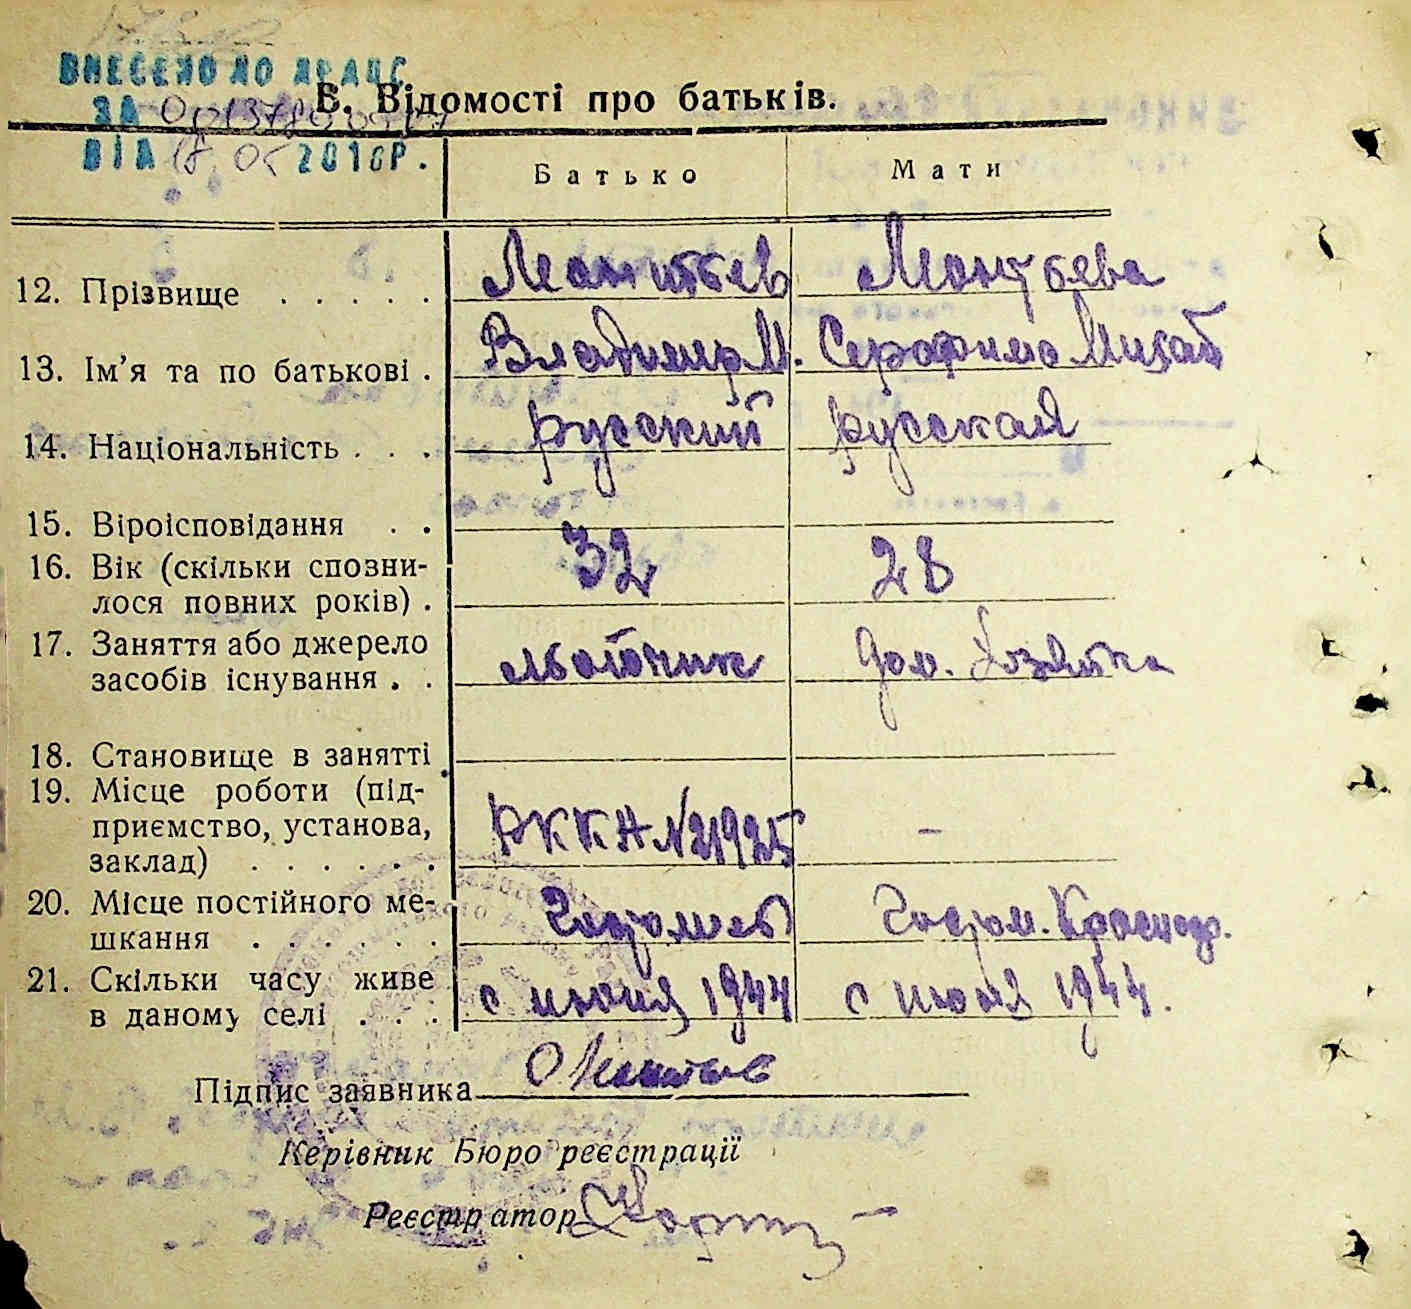 ВНЕСЕНО ДО ДРАЦС
ЗА
В. Відомості про батьків.
ВІД 18. 05 2016Р.
Батько Мати
12. Прізвище . . . . . Леонтьев Леонтьева
13. Ім’я та по батькові . Владимир М. Серафима Михай
14. Національність . . . русский русская
15. Віроісповідання . .
16. Вік (скільки сповни-
лося повних років) . 32 28
17. Заняття або джерело
засобів існування . . Дом. Хозяйка
18. Становище в занятті
19. Місце роботи (під-
приємство, установа,
заклад) . . . . . . РККА №21925 –
20. Місце постійного ме-
шкання . . . . . .
21. Скільки часу живе
в даному селі . . . с июня 1944 с июня 1944.
Підпис заявника
Керівник Бюро реєстрації
Реєстратор